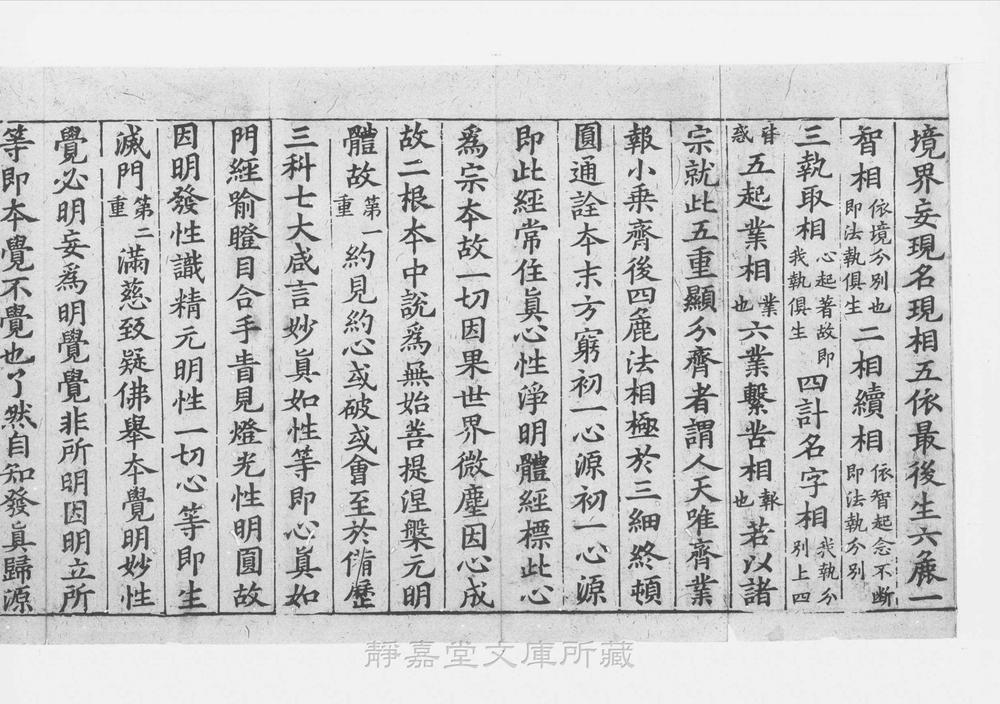 境界妄現名現相五依最後生六麁一
智相依境分別也即法執俱生二相續相依智起念不斷即法執分別
三執取相心起著故即我執俱生四計名字相我執分別上四
皆惑五起業相業也六業繫苦相報也若以諸
宗就此五重顯分齊者謂人天唯齊業
報小乗齊後四麁法相極於三細終頓
圓通詮本末方窮初一心源初一心源
即此經常住眞心性淨明體經標此心
爲宗本故一切因果世界微塵因心成
故二根本中説爲無始菩提涅槃元明
體故第一重約見約心或破或會至於備歷
三科七大咸言妙眞如性等即心眞如
門經喻瞪目合手眚見燈光性明圓故
因明發性識精元明性一切心等即生
滅門第二重滿慈致疑佛舉本覺明妙性
覺必明妄爲明覺覺非所明因明立所
等即本覺不覺也了然自知發眞歸源
靜嘉堂文庫所藏